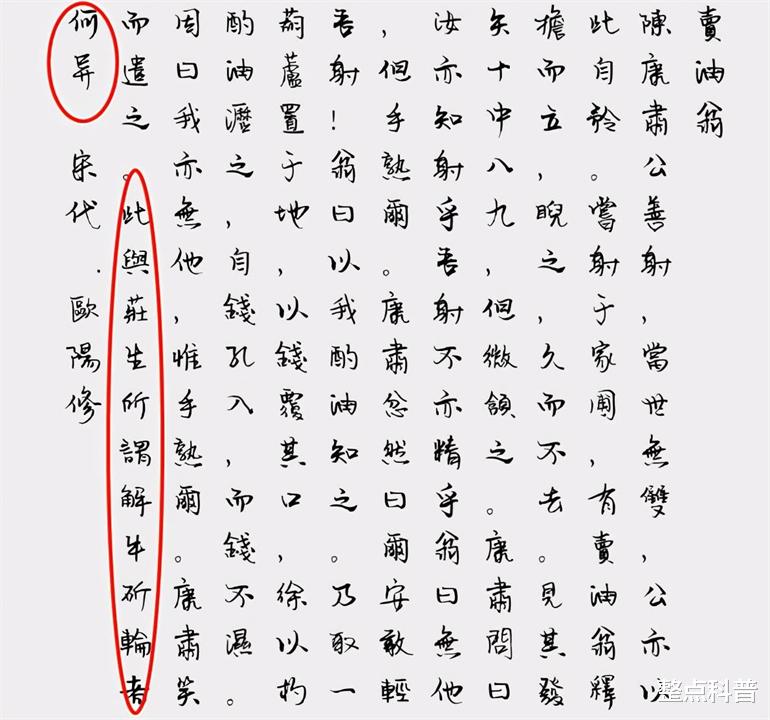 賣油翁
陳康肅公善射，當世無雙，公亦以
此自矜。嘗射于家圃，有賣油翁釋
擔而立，睨之，久而不去。見其發
矢十中八九，但微頷之。康肅問曰
汝亦知射乎吾射不亦精乎。翁曰無他
，但手熟爾。康肅忿然曰爾安敢輕
吾射！翁曰以我酌油知之。乃取一
葫蘆置于地，以錢覆其口，徐以杓
酌油瀝之，自錢孔入，而錢不濕。
因曰我亦無他，惟手熟爾。康肅笑
而遣之。此與莊生所謂解牛斫輪者
何异 宋代．歐陽修
整点科普